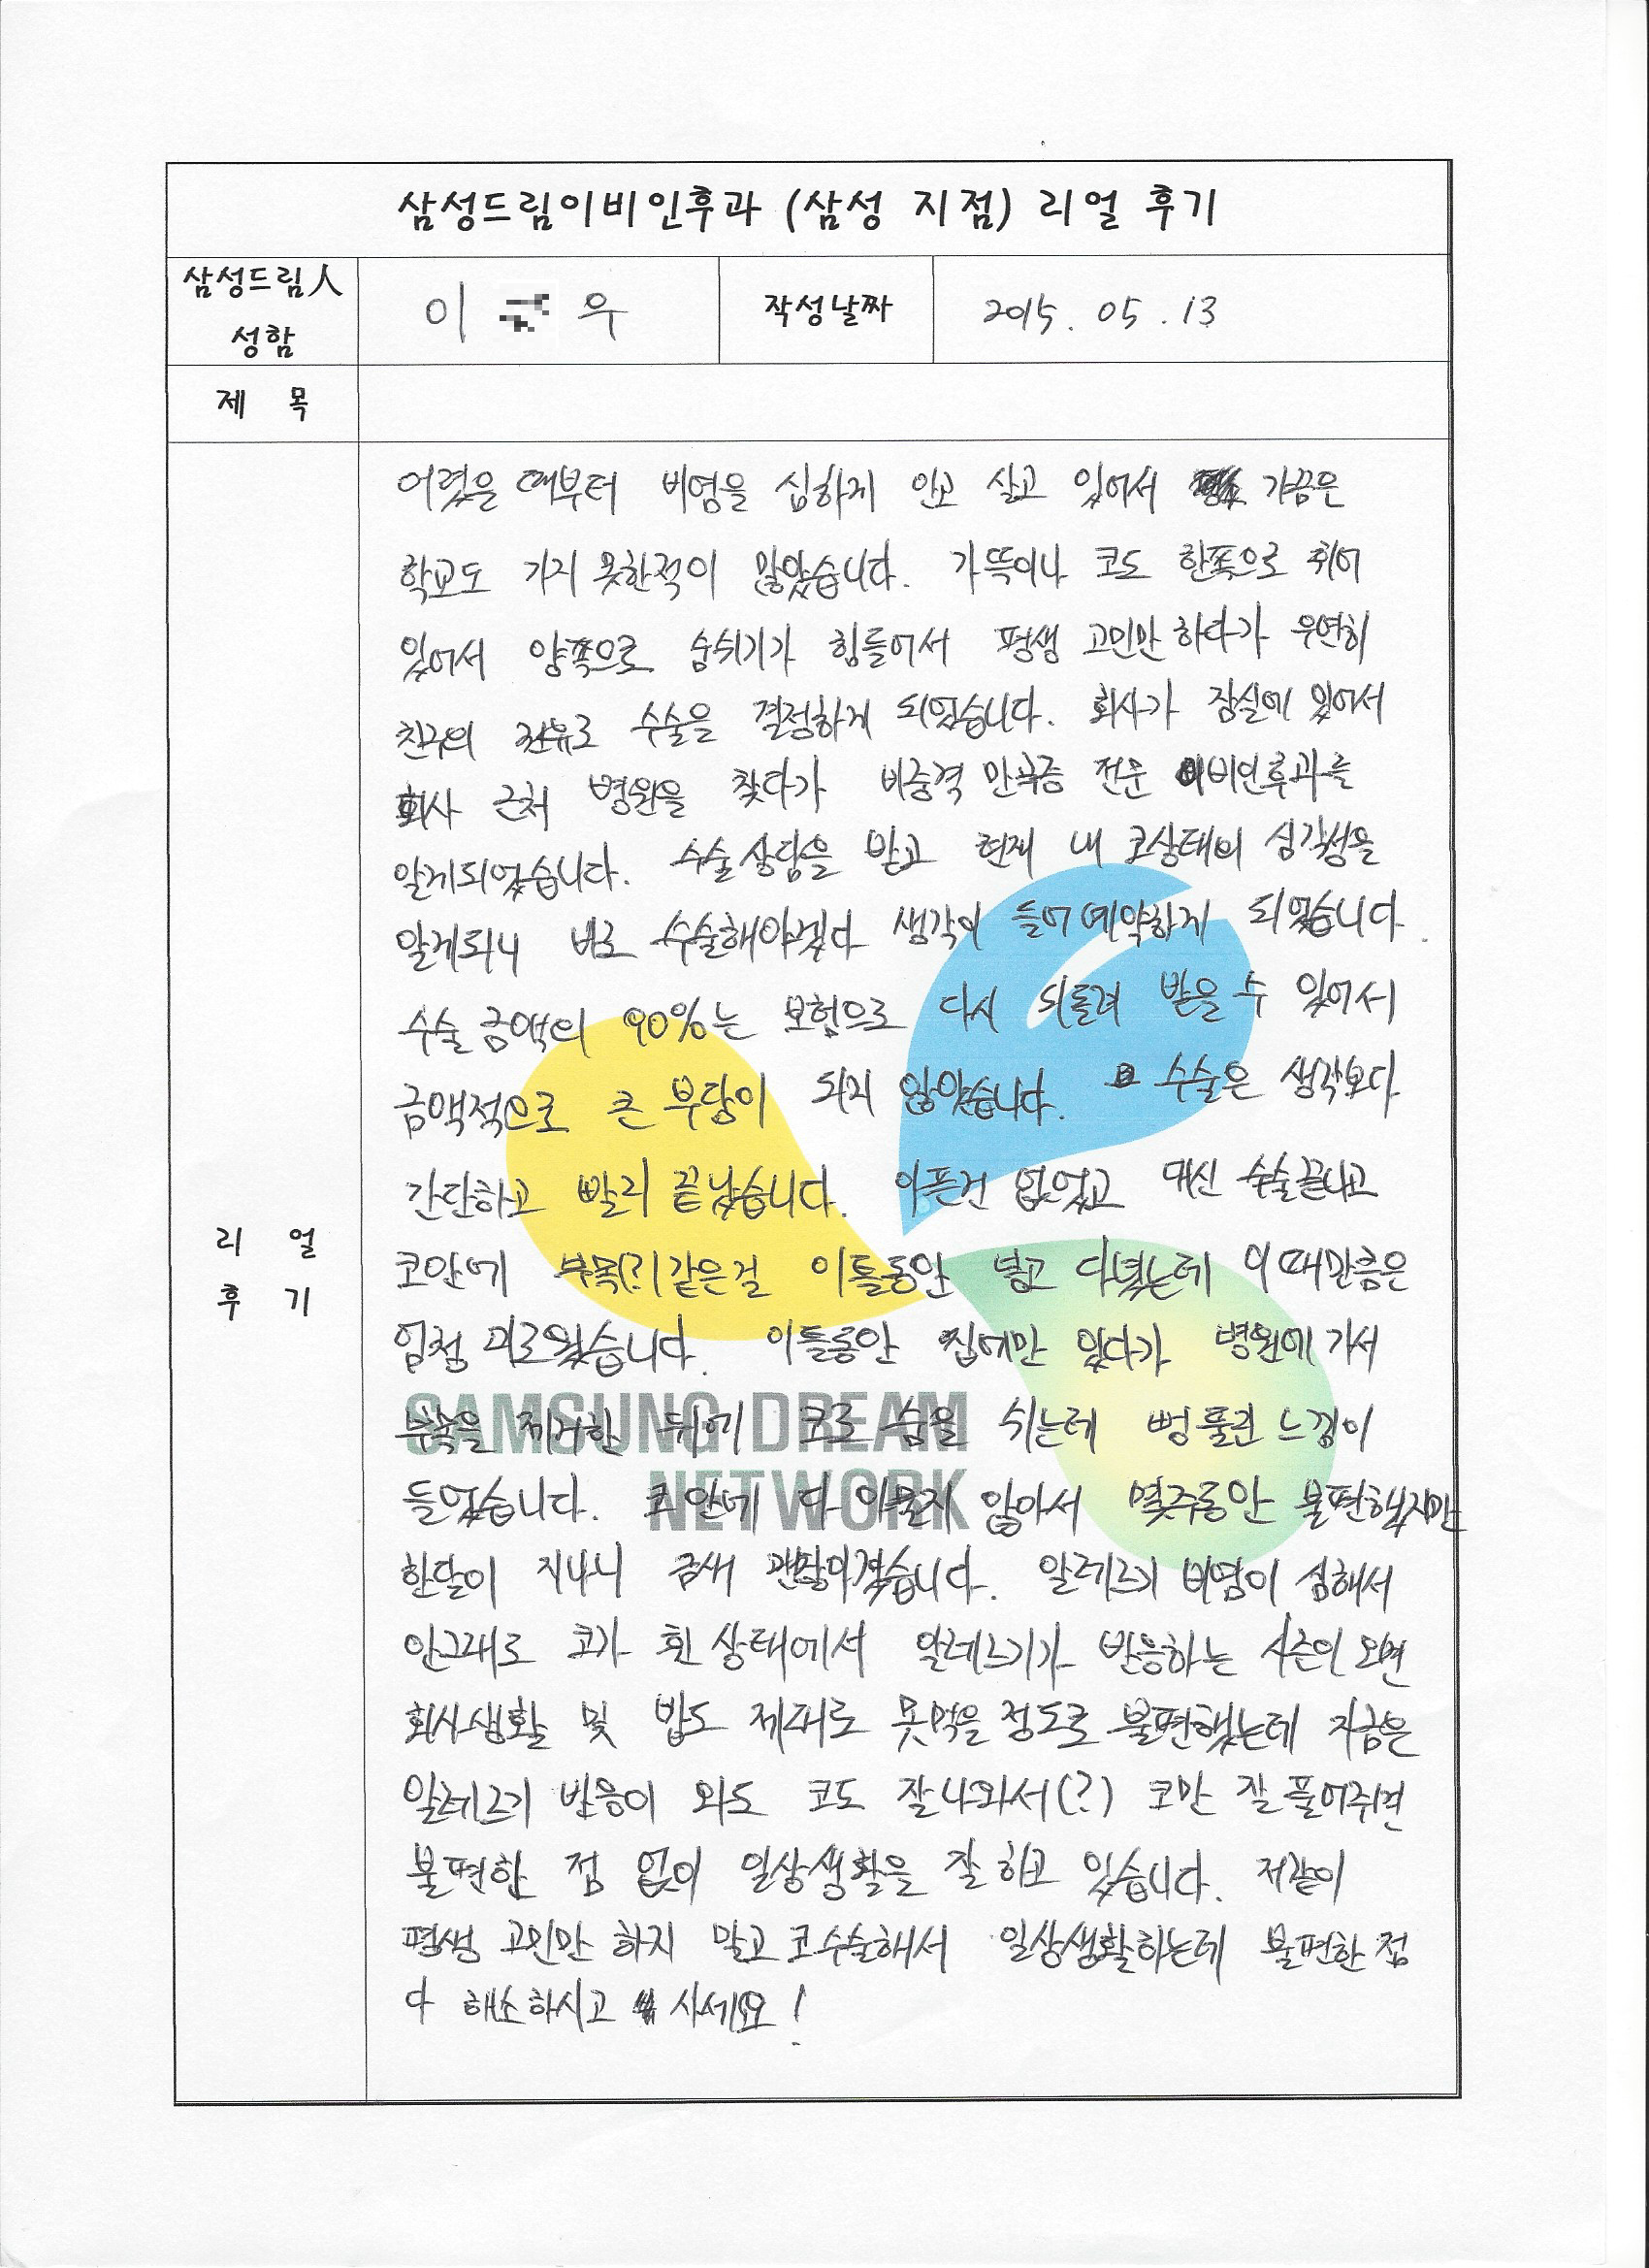 삼성드림이비인후과 (삼성 지점) 리얼 후기
삼성드림人 성함
이 우
작성날짜
2015. 05. 13
제 목
리 얼
후 기
어렸을 때부터 비염을 심하게 안고 살고 있어서 가끔은
학교도 가지 못한적이 많았습니다. 가뜩이나 코도 한쪽으로 휘어
있어서 양쪽으로 숨쉬기가 힘들어서 평생 고민만 하다가 우연히
친구의 권유로 수술을 결정하게 되었습니다. 회사가 잠실에 있어서
회사 근처 병원을 찾다가 비중격 만곡증 전문 이비인후과를
알게되었습니다. 수술상담을 받고 현재 내 코상태의 심각성을
알게되니 바로 수술해야겠다 생각이 들어 예약하게 되었습니다.
수술 금액의 90%는 보험으로 다시 되돌려 받을 수 있어서
금액적으로 큰 부담이 되지 않았습니다. 수술은 생각보다
간단하고 빨리 끝났습니다. 아픈건 없었고 대신 수술끝나고
코안에 부목(?)같은걸 이틀동안 넣고 다녔는데 이때만큼은
엄청 괴로웠습니다. 이틀동안 집에만 있다가 병원에 가서
부목을 제거한 뒤에 코로 숨을 쉬는데 뻥 뚫린 느낌이
들었습니다. 코안에 다 아물지 않아서 몇주동안 불편했지만
한달이 지나니 금새 괜찮아졌습니다. 알레르기 비염이 심해서
안그래도 코가 휜 상태에서 알레르기가 반응하는 시즌이 오면
회사생활 및 밥도 제대로 못먹을 정도로 불편했는데 지금은
알레르기 반응이 와도 코도 잘나와서(?) 코만 잘 풀어주면
불편한 점 없이 일상생활을 잘 하고 있습니다. 저같이
평생 고민만 하지 말고 코수술해서 일상생활하는데 불편한 점
다 해소하시고 사세요!
SAMSUNG DREAM
NETWORK